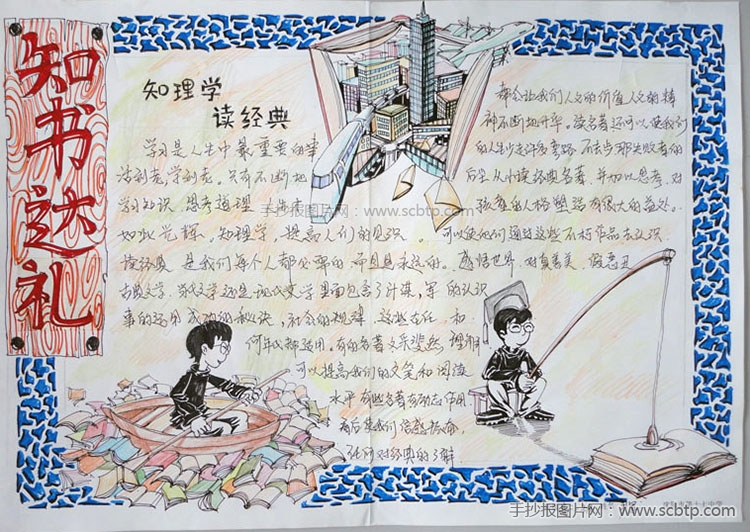 知书达礼
知理学
读经典
学习是人生中最重要的事
活到老,学到老。只有不断地
学习知识,思考道理
如此光辉。知理学,提高人们的见识
读经典,是我们每个人都必要的,而且是永远的。
古典文学、现代文学里面包含了计谋,军
事的运用,成功的秘诀,社会的规律,这些在任
何年代都适用。有的名著文采斐然,
可以提高我们的文笔和阅读
水平,有些名著有励志作用
任何对经典的了解
都会让我们人文的价值,人文的精
神不断地升华。读名著还可以使我们
的人生少走许多弯路,不去步那失败者的
后尘,从小读经典名著,并加以思考,对
孩童的人格塑造有很大的益处。
可以使他们通过这些不朽作品去认识
感悟世界,对真善美、假恶丑
的认识
和
理解
手抄报图片网:www.scbtp.com
手抄报图片网:www.scbtp.com